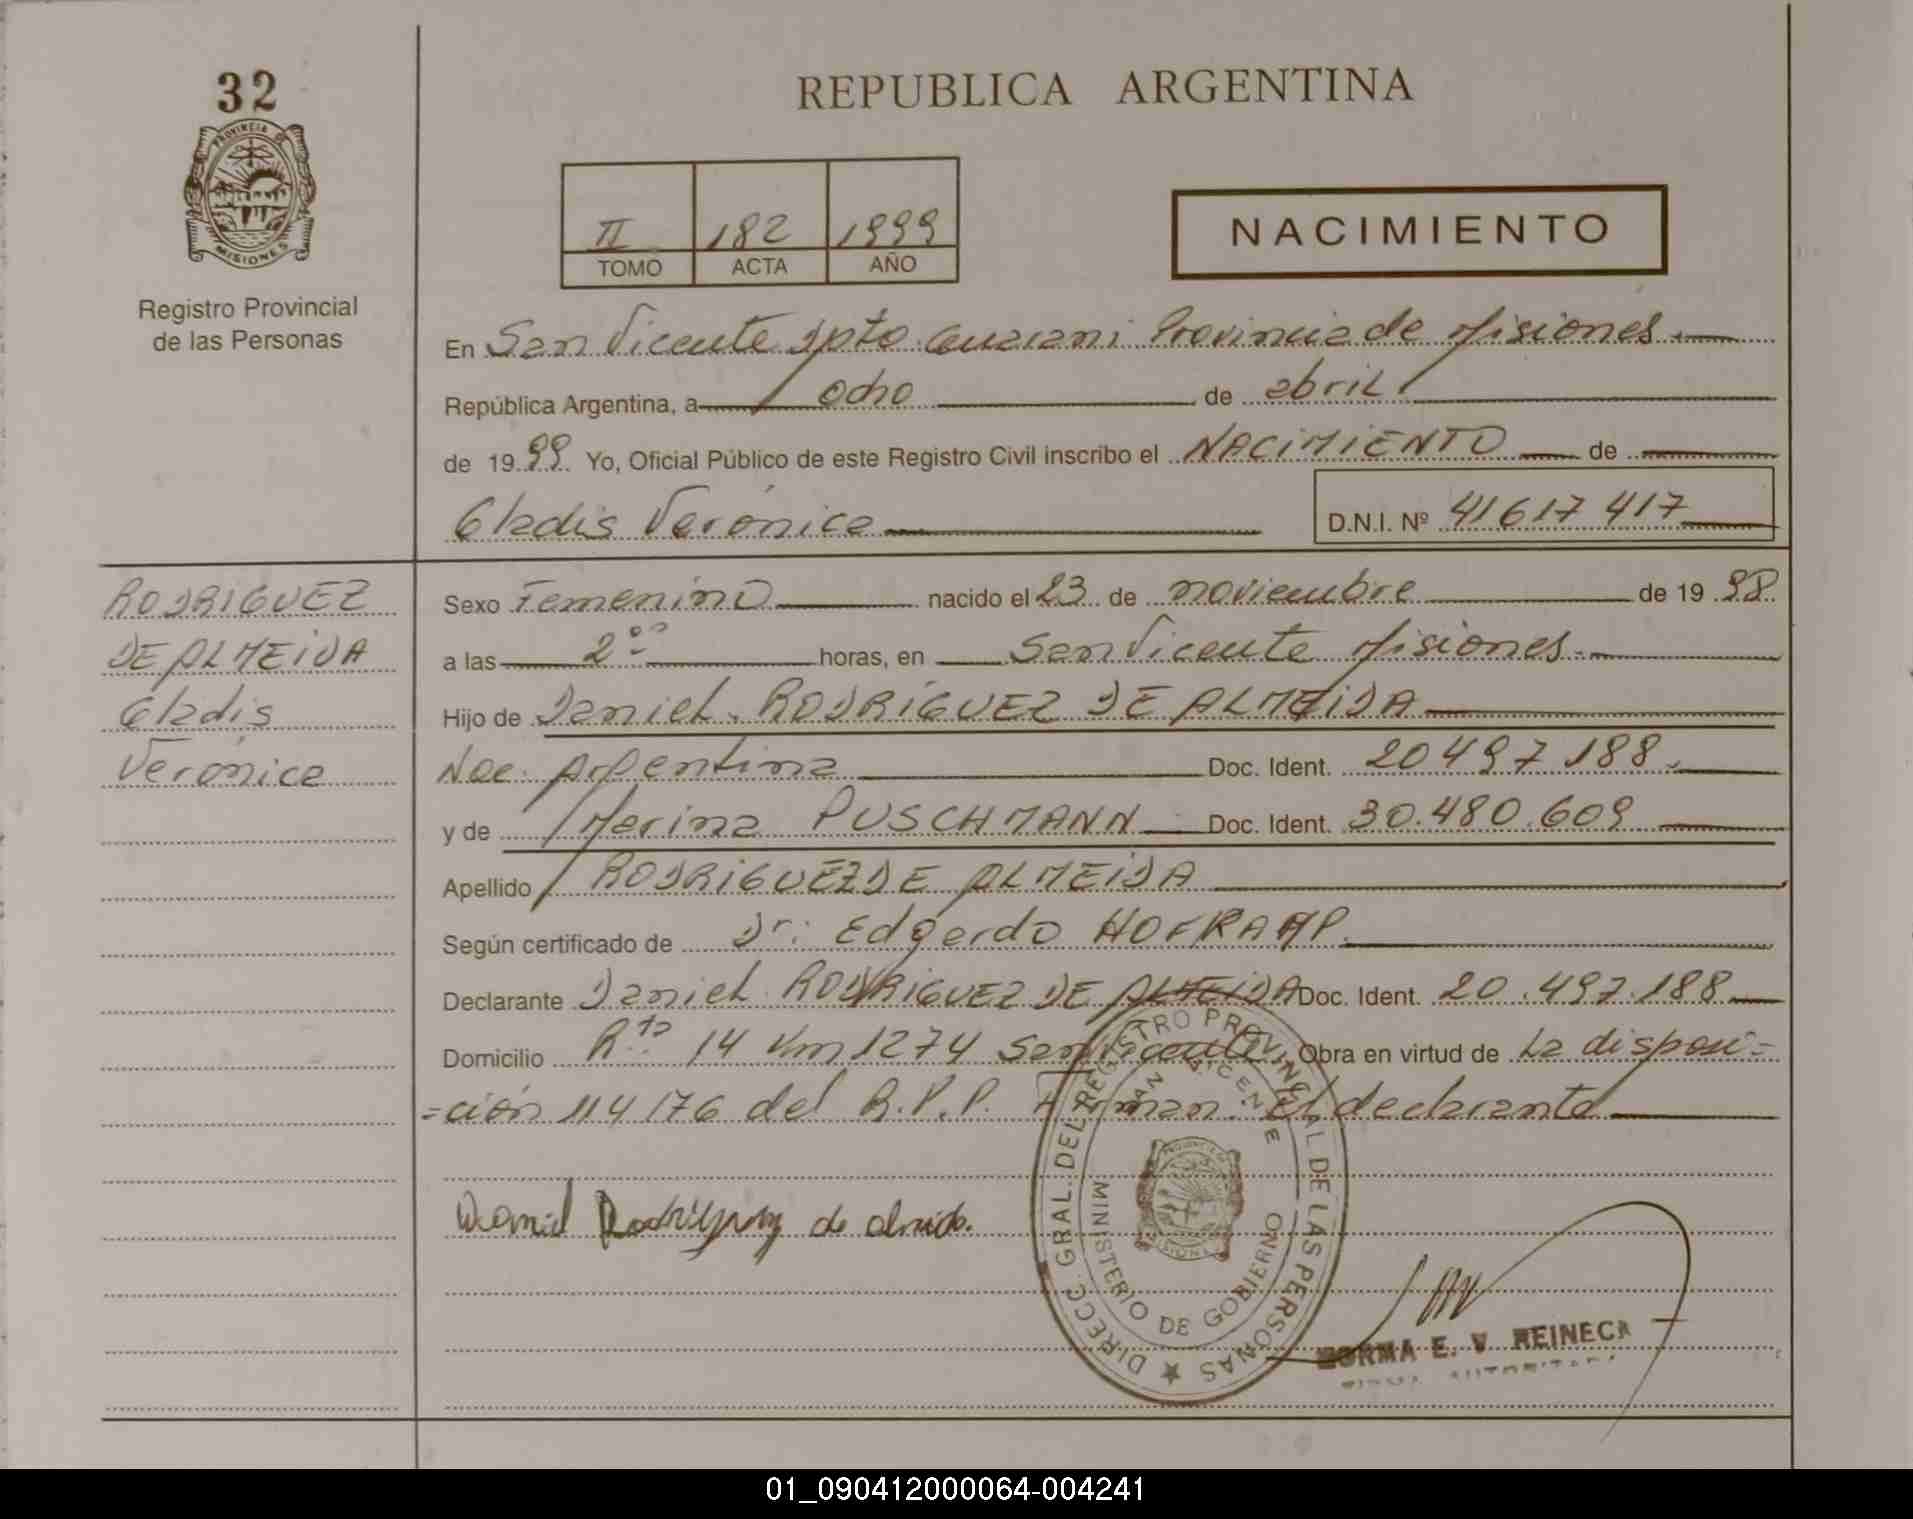 32
PROVINCIA DE
MISIONES
Registro Provincial
de las Personas
REPUBLICA ARGENTINA
II 182 1999
TOMO ACTA AÑO
NACIMIENTO
En San Vicente Dpto Guarani Provincia de Misiones.
República Argentina, a ocho de abril
de 1999 Yo, Oficial Público de este Registro Civil inscribo el NACIMIENTO de
Gladis Verónica
D.N.I. Nº 41617417
RODRIGUEZ
DE ALMEIDA
Gladis
Verónica
Sexo Femenino nacido el 23 de noviembre de 1998
a las 2⁰⁰ horas, en San Vicente Misiones.
Hijo de Daniel RODRIGUEZ DE ALMEIDA
Nac. Argentina Doc. Ident. 20497188.
y de Marina PUSCHMANN Doc. Ident. 30.480.609
Apellido RODRIGUEZ DE ALMEIDA
Según certificado de Dr. Edgardo
Declarante Daniel RODRIGUEZ DE ALMEIDA Doc. Ident. 20.497.188
Domicilio Rta 14 Km 1274 San Vicente. Obra en virtud de La disposi=
=ción 114/76 del R.P.P. Firman. El declarante
Daniel Rodriguez de almeida.
DIRECC. GRAL. DEL REGISTRO PROVINCIAL DE LAS PERSONAS ★
SAN VICENTE
MINISTERIO DE GOBIERNO
NORMA E. V. REINECK
01_090412000064-004241